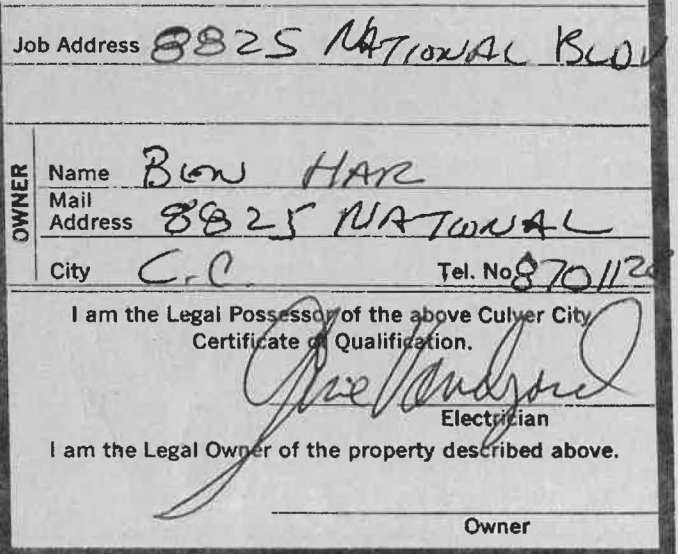 Job Address 8825 NATIONAL BLDV
OWNER
Name BEN HAR
Mail
Address 8825 NATIONAL
City C.C. Tel. No. 870112
I am the Legal Possessor of the above Culver City
Certificate of Qualification.
Electrician
I am the Legal Owner of the property described above.
Owner